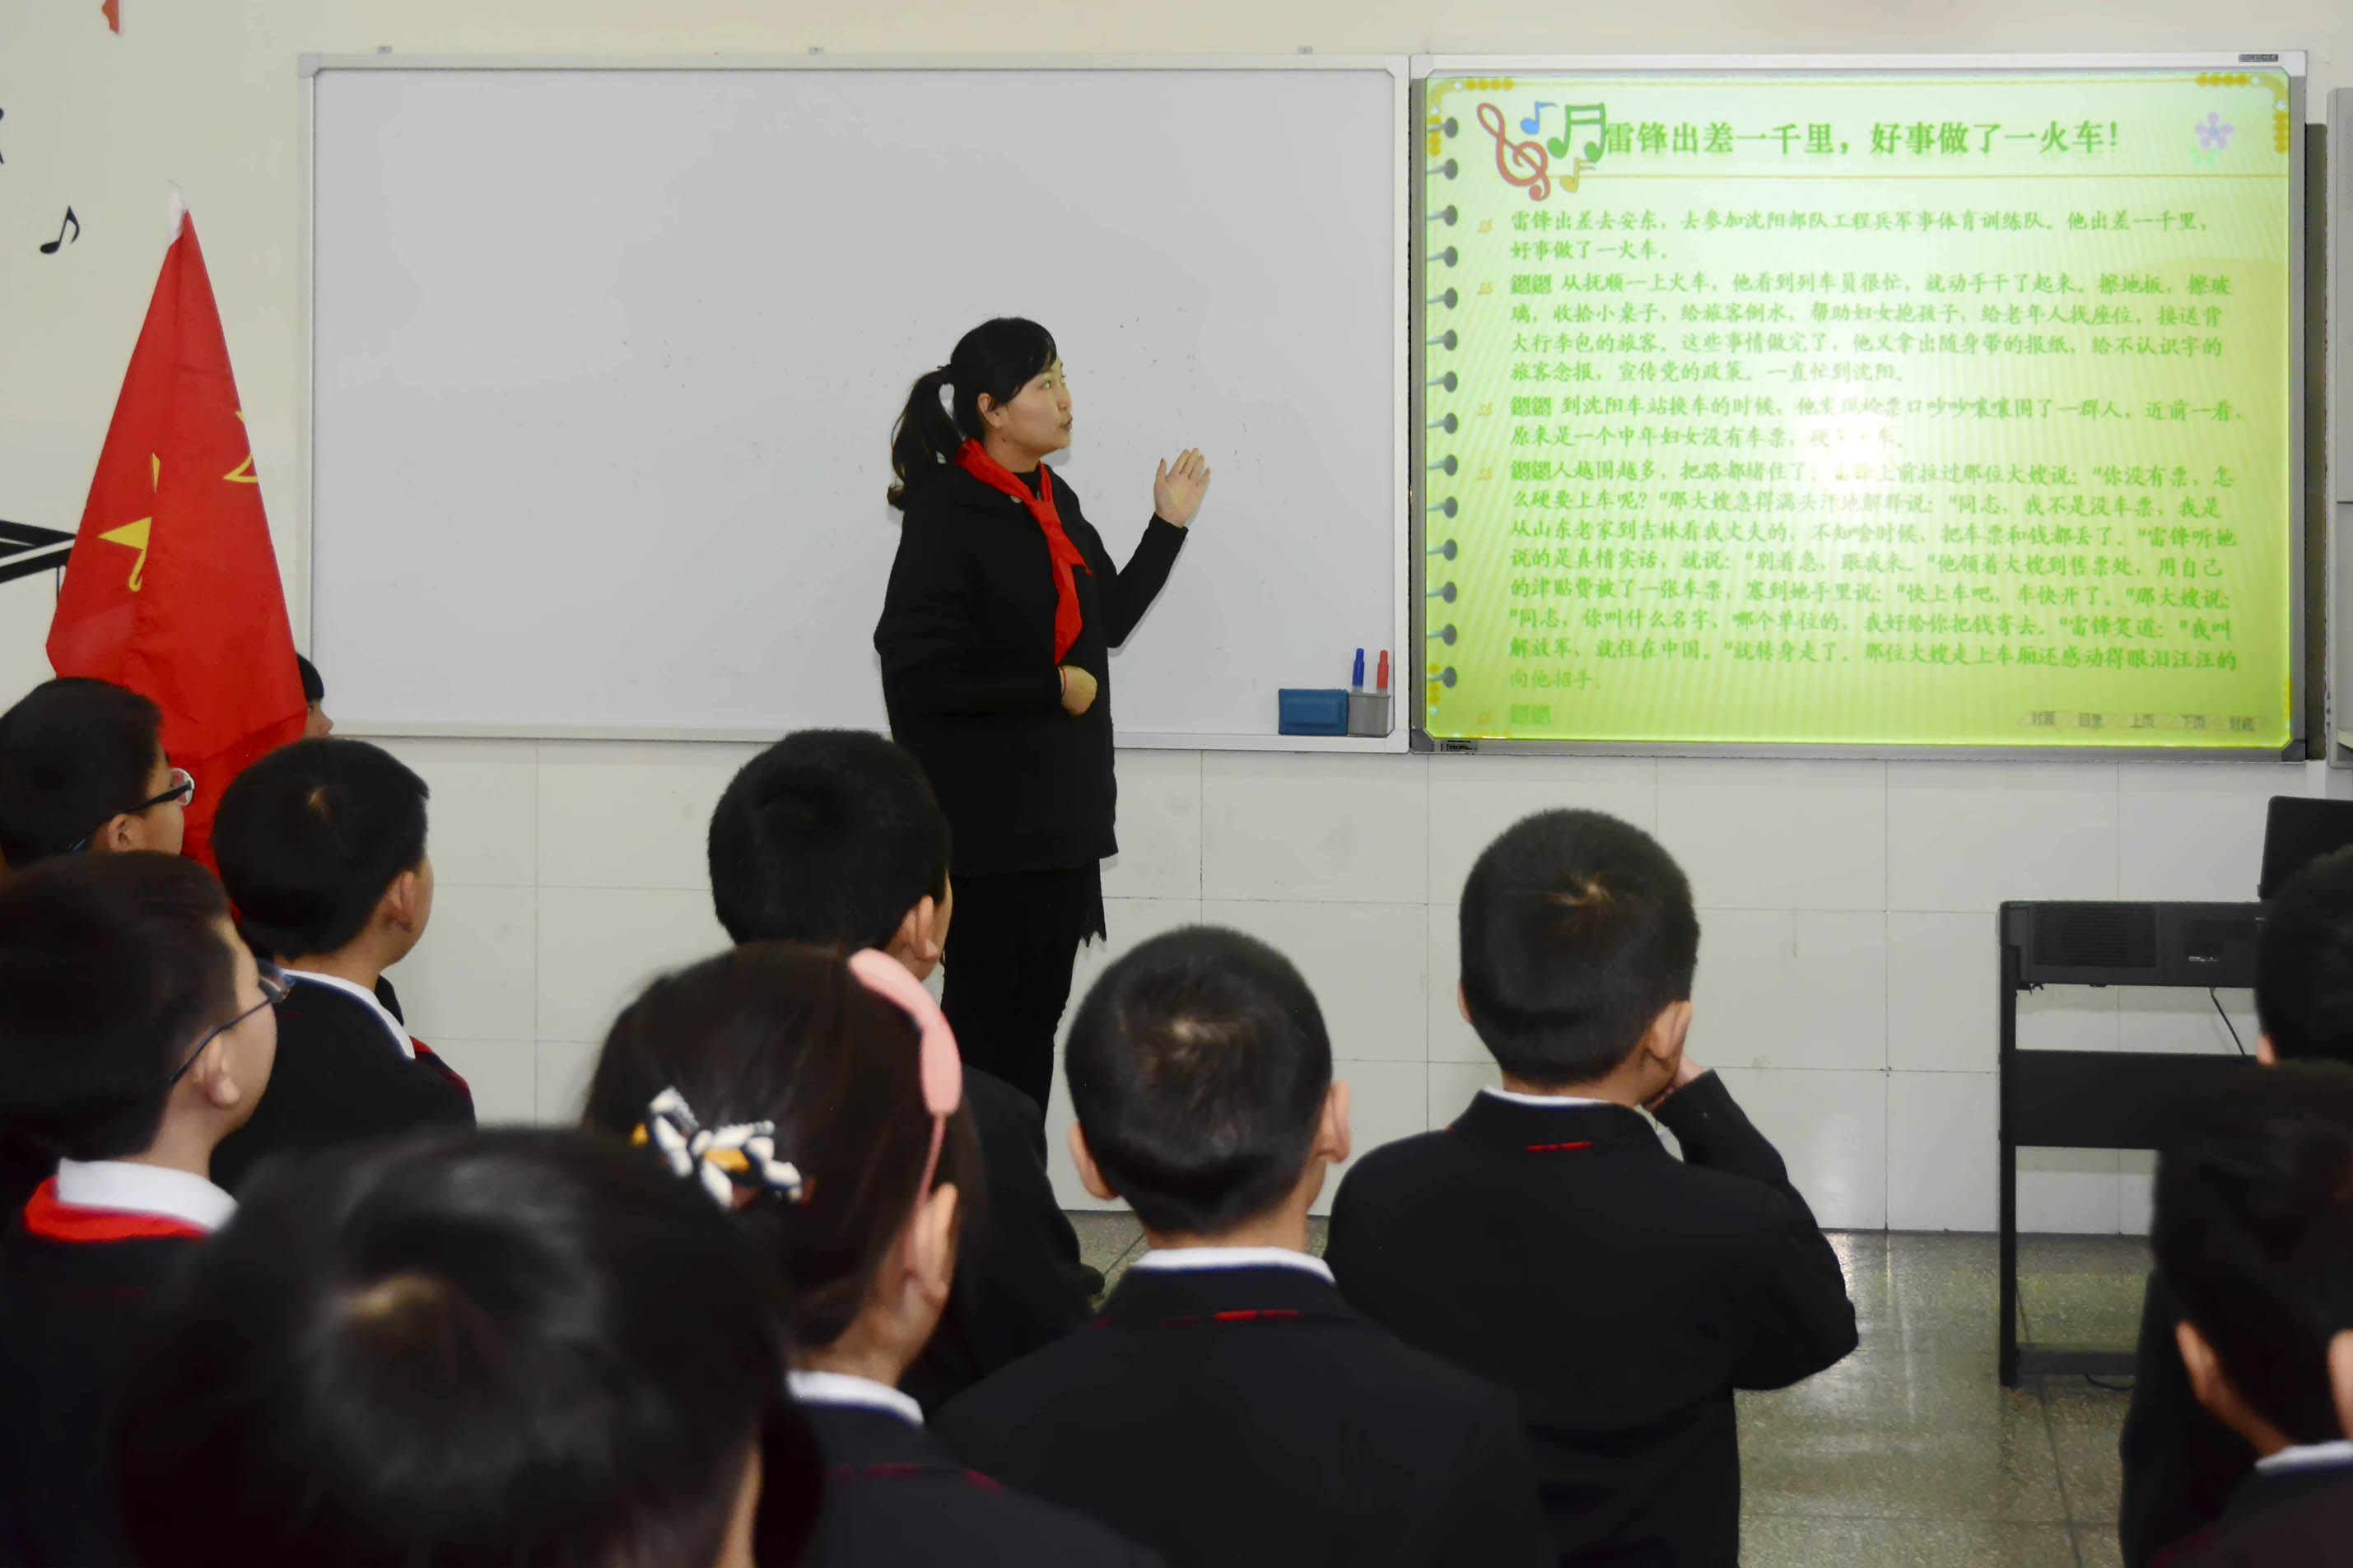 雷锋出差一千里，好事做了一火车！
雷锋出差去安东，去参加沈阳部队工程兵军事体育训练队。他出差一千里，
好事做了一火车。
从抚顺一上火车，他看到列车员很忙，就动手干了起来。擦地板，擦玻
璃，收拾小桌子，给旅客倒水，帮助妇女抱孩子，给老年人找座位，接送背
大行李包的旅客。这些事情做完了，他又拿出随身带的报纸，给不认识字的
旅客念报，宣传党的政策。一直忙到沈阳。
到沈阳车站换车的时候，他发现检票口吵吵嚷嚷围了一群人，近前一看，
原来是一个中年妇女没有车票，硬 车。
人越围越多，把路都堵住了。 上前拉过那位大嫂说："你没有票，怎
么硬要上车呢？"那大嫂急得满头汗地解释说："同志，我不是没车票，我是
从山东老家到吉林看我丈夫的，不知啥时候，把车票和钱都丢了。"雷锋听她
说的是真情实话，就说："别着急，跟我来。"他领着大嫂到售票处，用自己
的津贴费被了一张车票，塞到她手里说："快上车吧，车快开了。"那大嫂说：
"同志，你叫什么名字，哪个单位的，我好给你把钱寄去。"雷锋笑道："我叫
解放军，就住在中国。"就转身走了。那位大嫂走上车厢还感动得眼泪汪汪的
向他招手。
封面 目录 上页 下页 封底